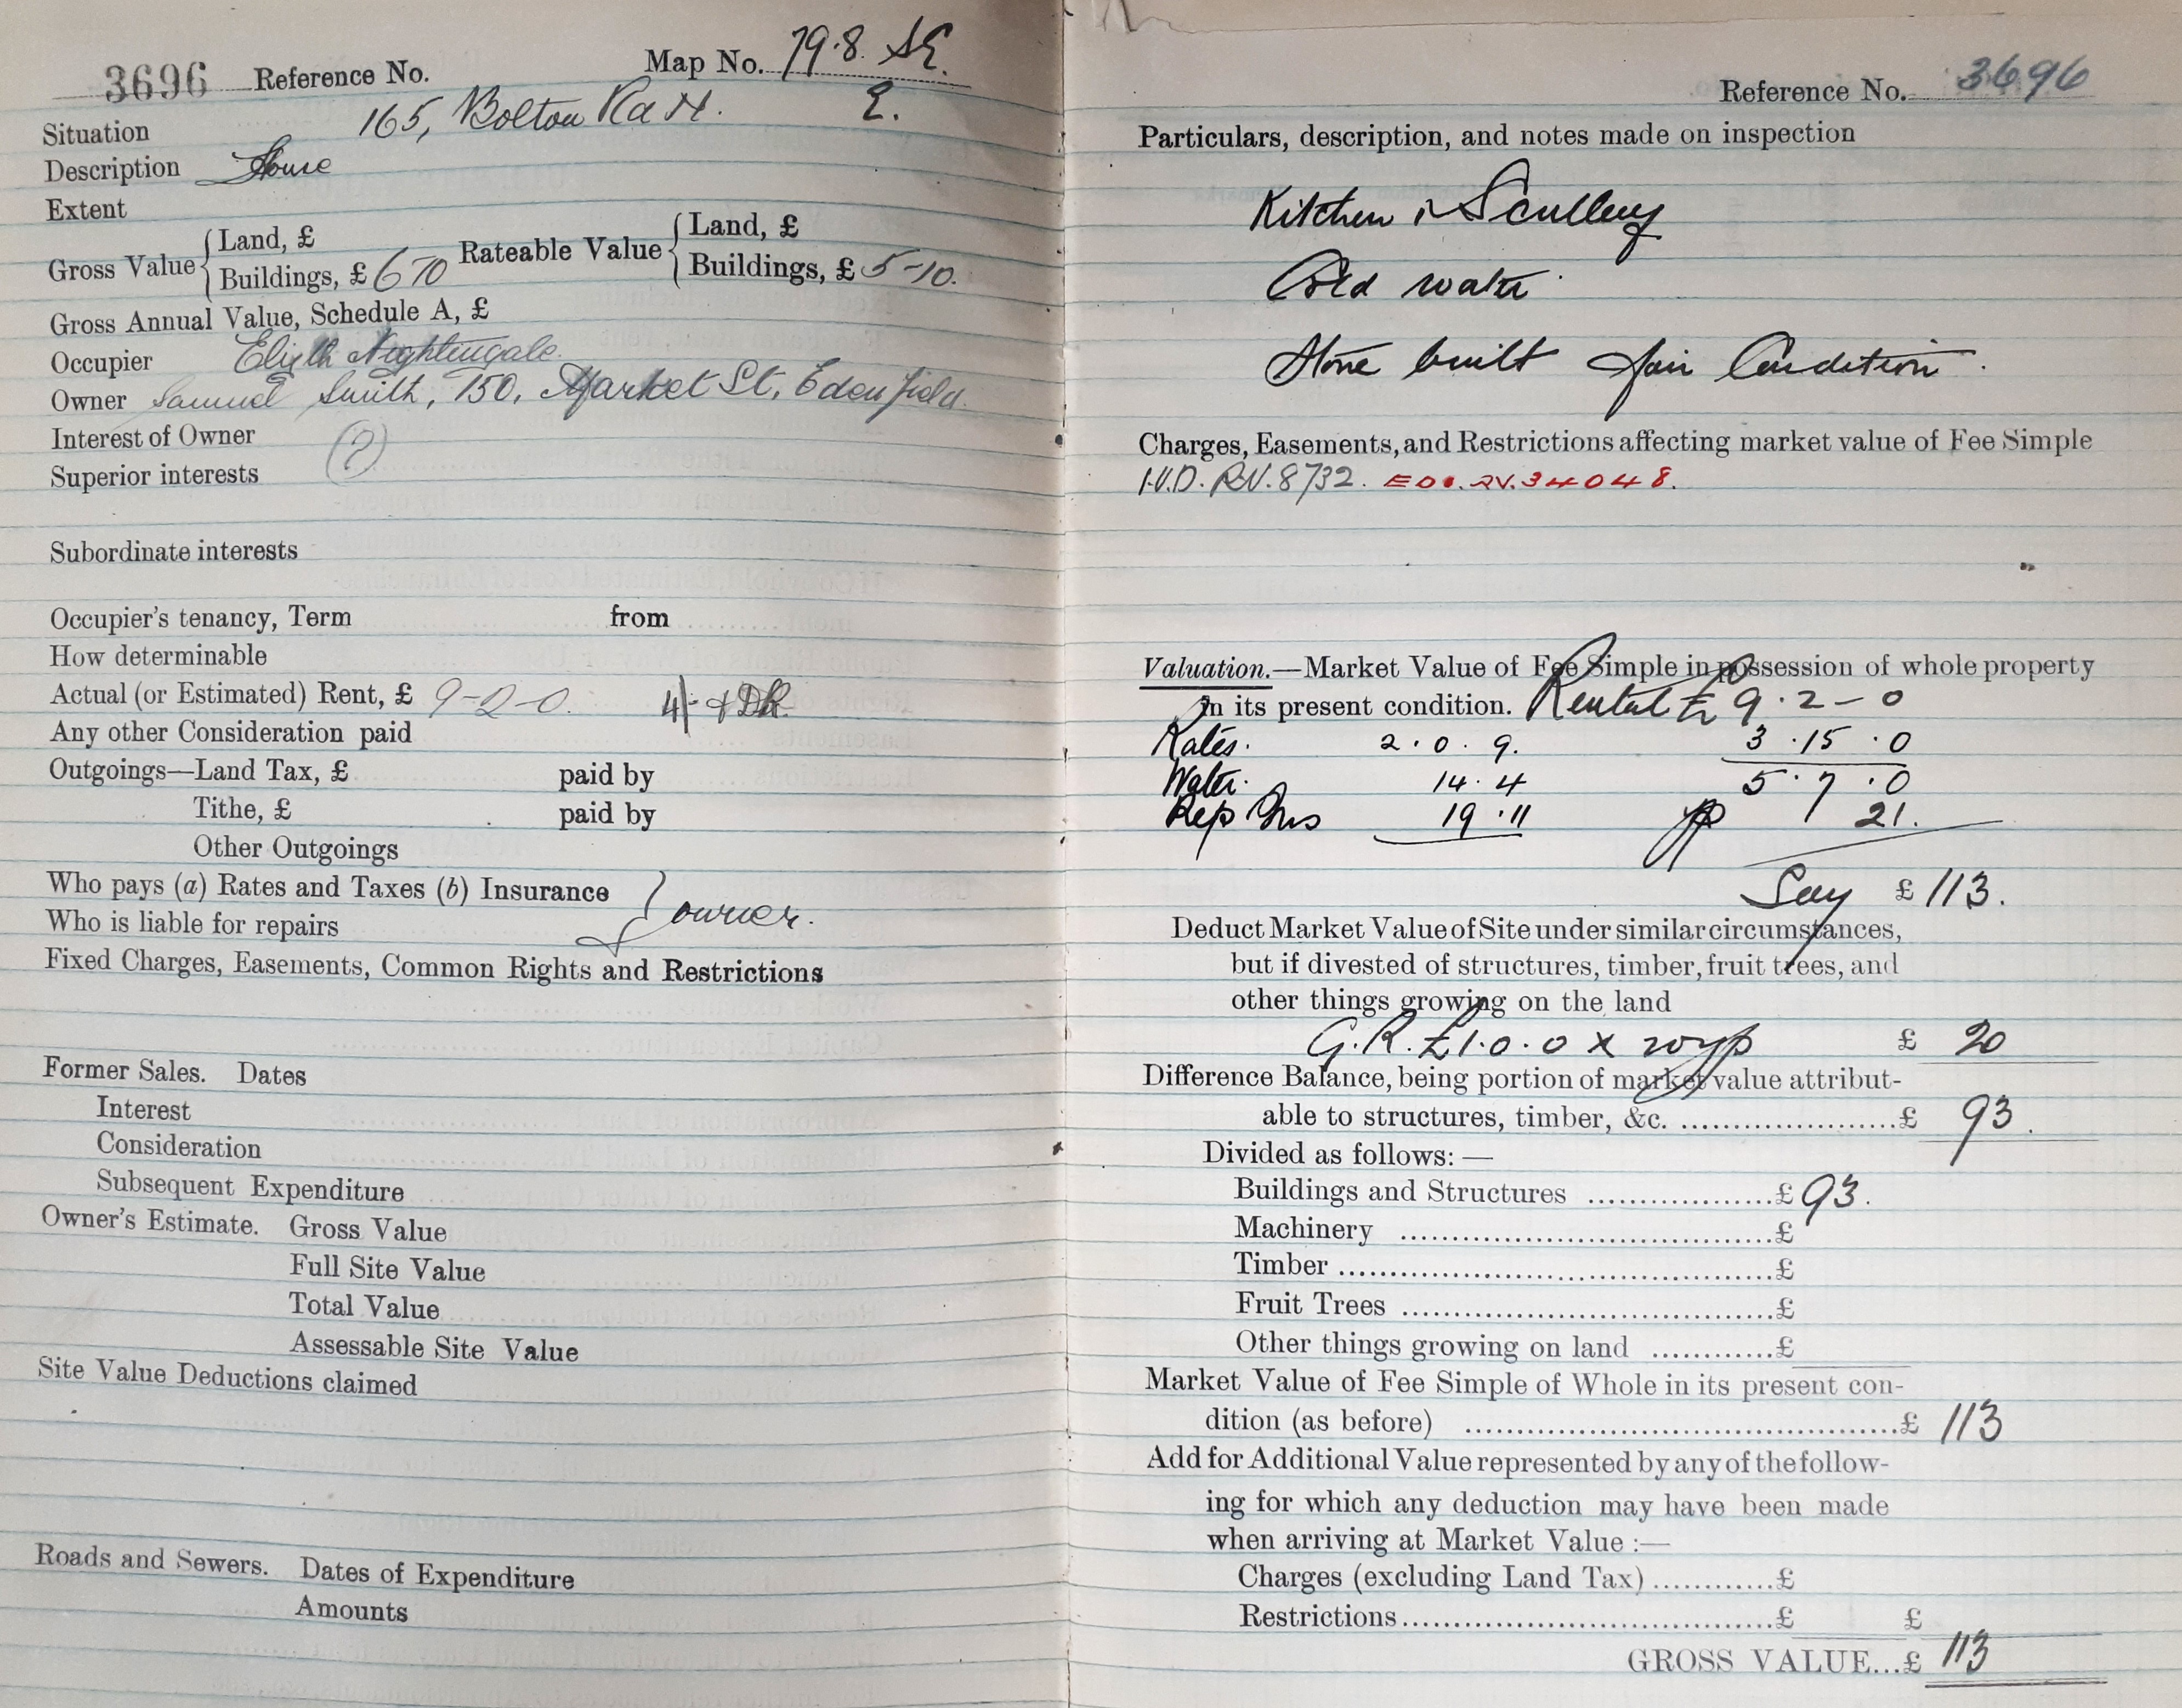 3696 Reference No. Map No. 79.8. SE.
Situation 165, Bolton Rd N. E.
Description House
Extent
Gross Value { Land, £ Rateable Value { Land, £
Buildings, £ 6 10 Buildings, £ 5-10.
Gross Annual Value, Schedule A, £
Occupier Elizth Nightingale
Owner Samuel Smith, 150, Market St, Edenfield.
Interest of Owner (?)
Superior interests
Subordinate interests
Occupier's tenancy, Term from
How determinable
Actual (or Estimated) Rent, £ 9-2-0. 4/-
Any other Consideration paid
Outgoings—Land Tax, £ paid by
Tithe, £ paid by
Other Outgoings
Who pays (a) Rates and Taxes (b) Insurance } owner.
Who is liable for repairs
Fixed Charges, Easements, Common Rights and Restrictions
Former Sales. Dates
Interest
Consideration
Subsequent Expenditure
Owner's Estimate. Gross Value
Full Site Value
Total Value
Assessable Site Value
Site Value Deductions claimed
Roads and Sewers. Dates of Expenditure
Amounts
Reference No. 3696
Particulars, description, and notes made on inspection
Kitchen & Scullery
Cold water
Stone built fair Condition.
Charges, Easements, and Restrictions affecting market value of Fee Simple
I.V.D. RV. 8732. EDI. RV. 34048.
Valuation.—Market Value of Fee Simple in possession of whole property
in its present condition. Rental £ 9.2-0
Rates. 2.0.9. 3.15.0
Water. 14.4 5.7.0
Rep Ins 19.11 yp 21.
Say £ 113.
Deduct Market Value of Site under similar circumstances,
but if divested of structures, timber, fruit trees, and
other things growing on the land
G.R. £1.0.0 x 20yp £ 20
Difference Balance, being portion of market value attribut-
able to structures, timber, &c. £ 93.
Divided as follows:—
Buildings and Structures £ 93.
Machinery £
Timber £
Fruit Trees £
Other things growing on land £
Market Value of Fee Simple of Whole in its present con-
dition (as before) £ 113
Add for Additional Value represented by any of the follow-
ing for which any deduction may have been made
when arriving at Market Value :—
Charges (excluding Land Tax) £
Restrictions £ £
GROSS VALUE...£ 113